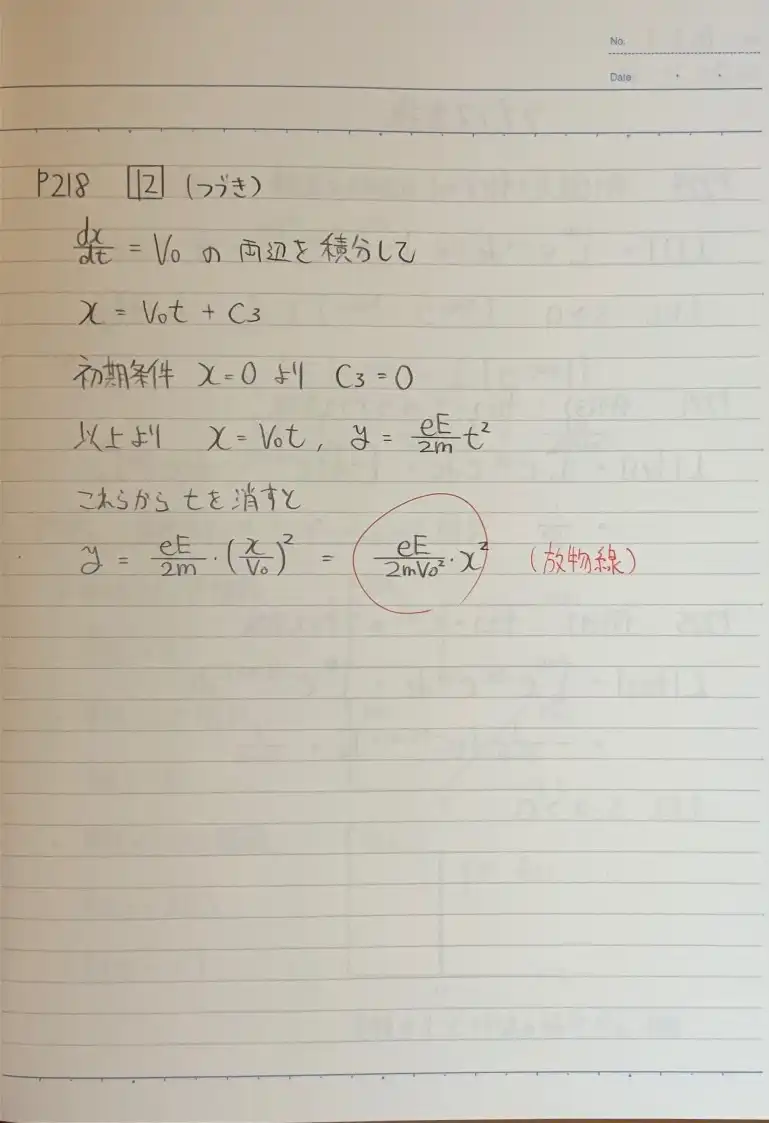 No.
Date
P218 12 (つづき)
dx/dt = V₀ の 両辺を積分して
x = V₀t + C₃
初期条件 x=0 より C₃=0
以上より x = V₀t, y = eE/2m t²
これらから tを消すと
y = eE/2m · (x/V₀)² = eE/2mV₀² · x² (放物線)